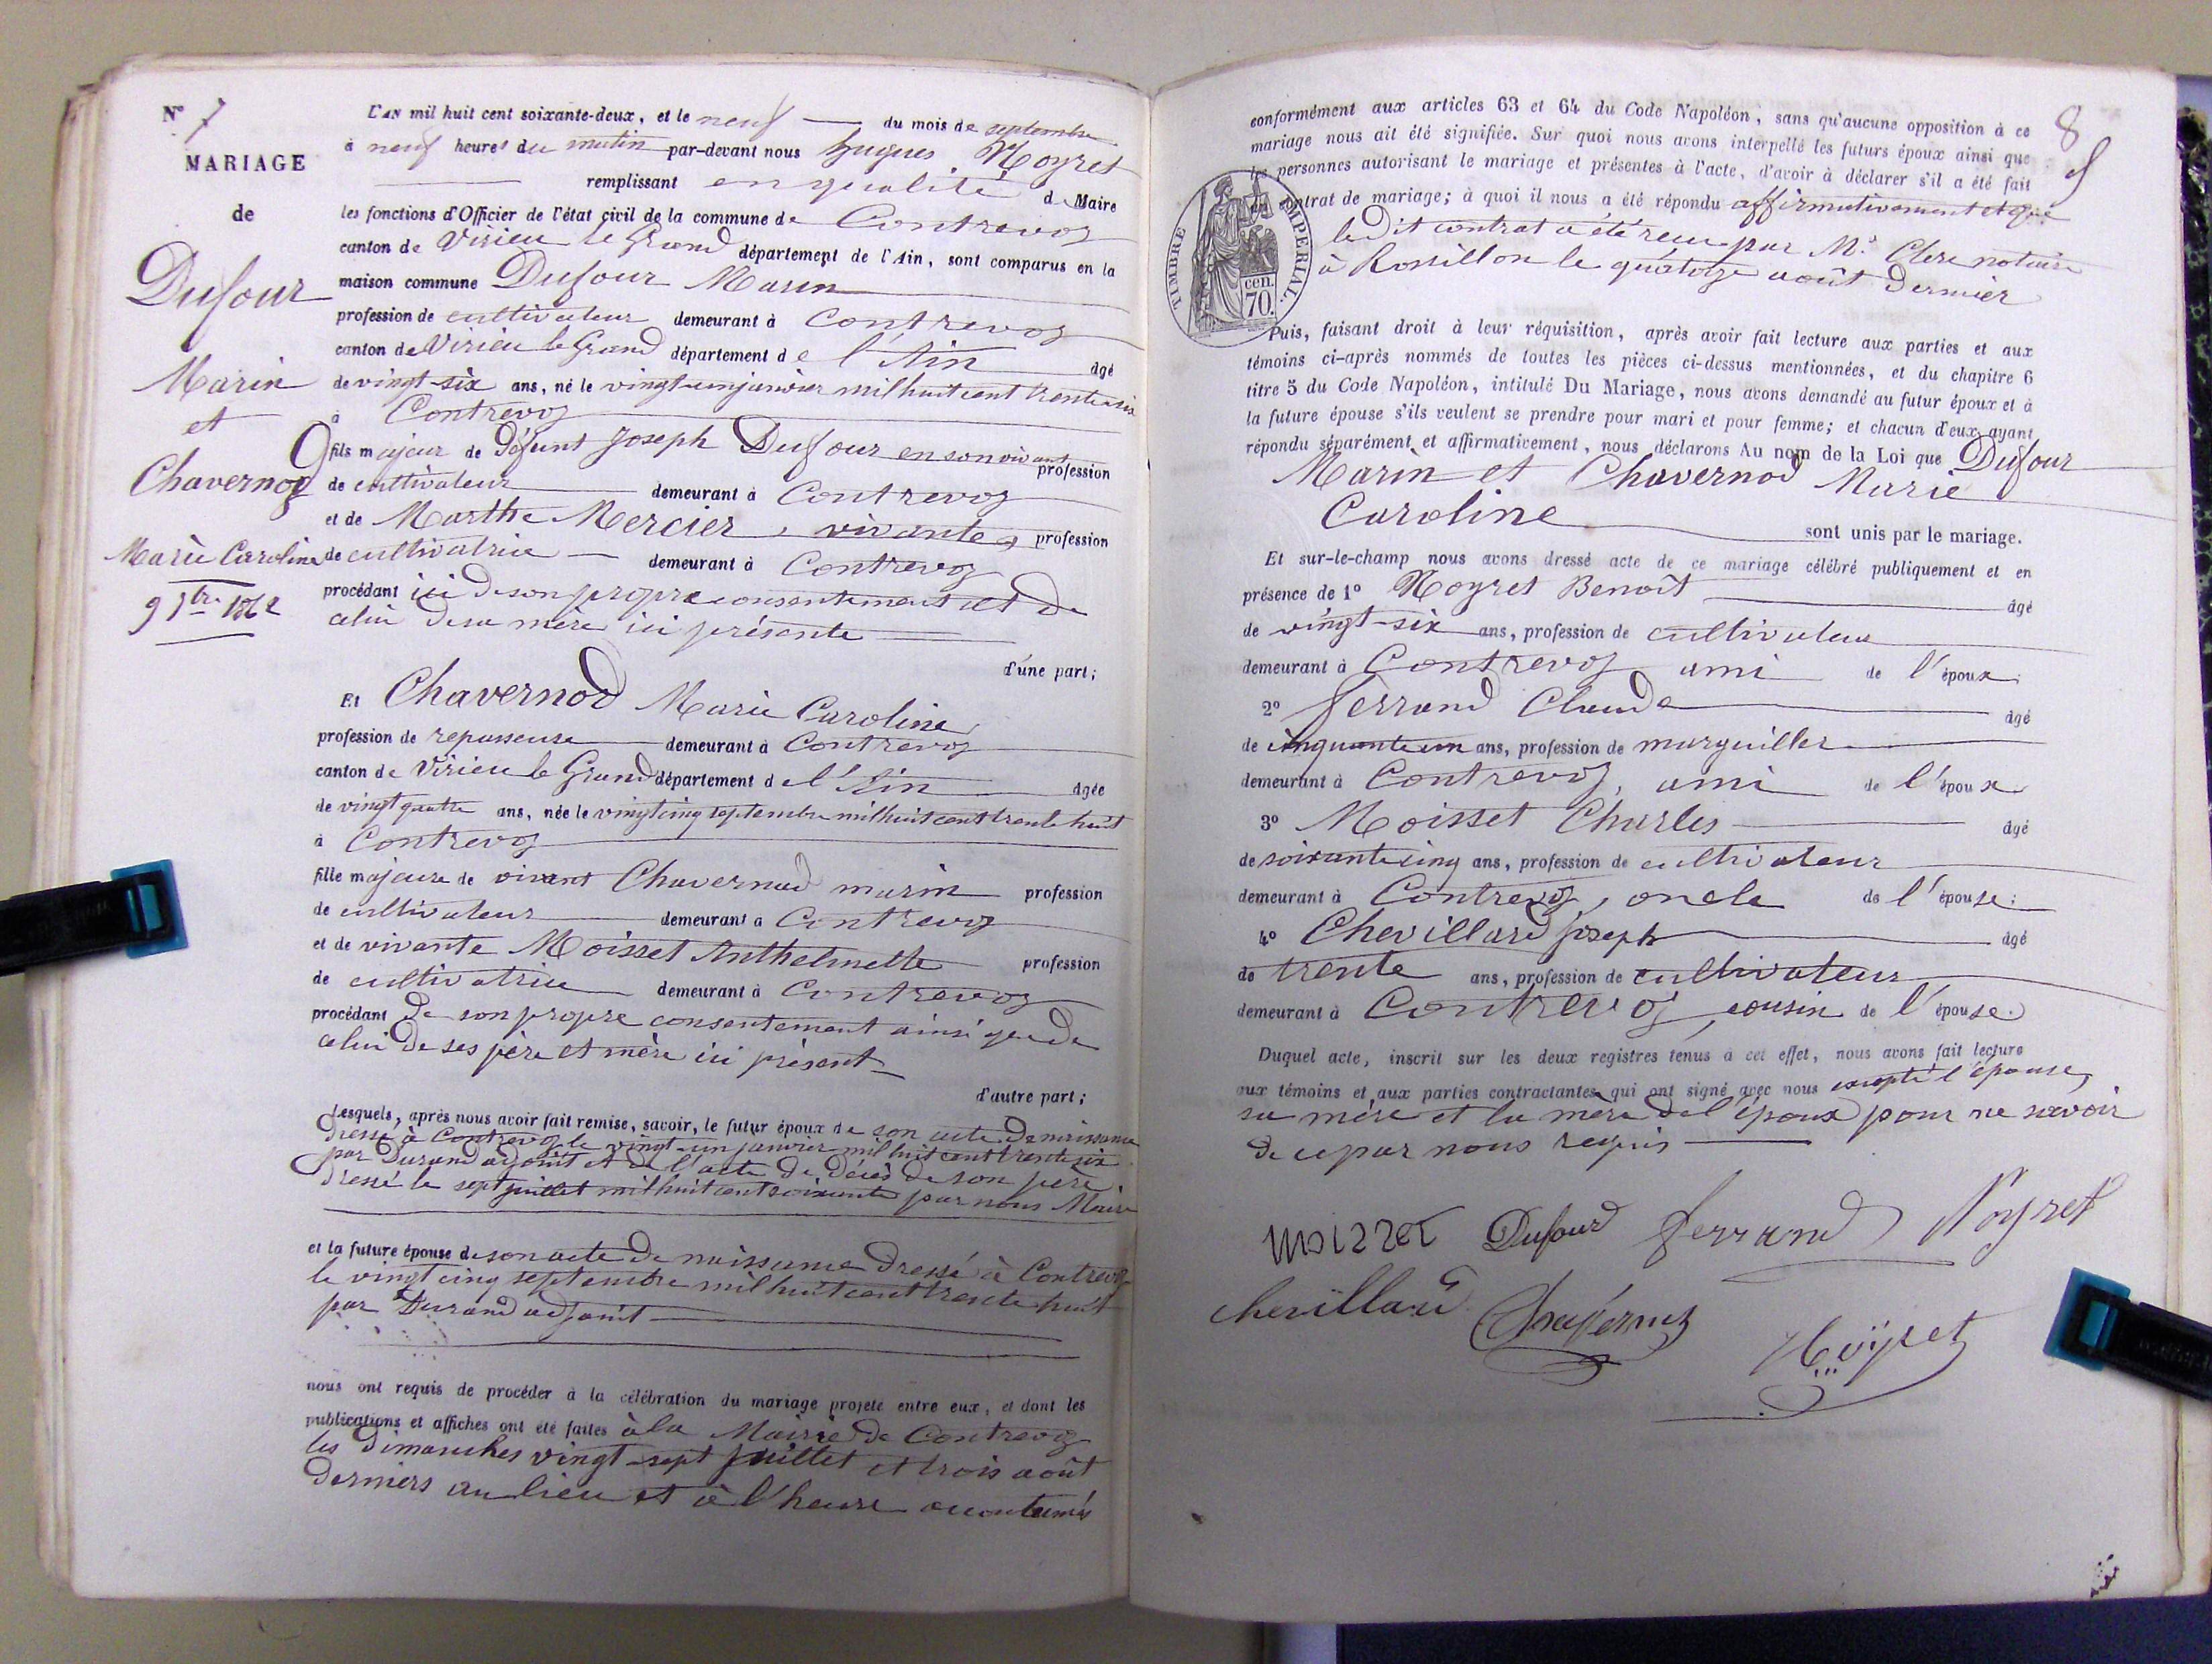 N° 7
MARIAGE
de
Dufour
Marin
et
Chavernoz
Marie Caroline
9 7bre 1862
L'AN mil huit cent soixante-deux, et le neuf du mois de septembre
à neuf heures du matin par-devant nous Hugues Noyret
remplissant en qualité de Maire
les fonctions d'Officier de l'état civil de la commune de Contrevoz
canton de Virieu le Grand département de l'Ain, sont comparus en la
maison commune Dufour Marin
profession de cultivateur demeurant à Contrevoz
canton de Virieu le Grand département de l'Ain âgé
de vingt-six ans, né le vingt-un janvier mil huit cent trente-six
à Contrevoz
fils majeur de défunt Joseph Dufour en son vivant profession
de cultivateur demeurant à Contrevoz
et de Marthe Mercier, vivante, profession
de cultivatrice demeurant à Contrevoz
procédant ici de son propre consentement et de
celui de sa mère ici présente
d'une part;
Et Chavernod Marie Caroline
profession de repasseuse demeurant à Contrevoz
canton de Virieu le Grand département de l'Ain âgée
de vingt quatre ans, née le vingt cinq septembre mil huit cent trente huit
à Contrevoz
fille majeure de vivant Chavernod marin profession
de cultivateur demeurant à Contrevoz
et de vivante Moisset Anthelmette profession
de cultivatrice demeurant à Contrevoz
procédant de son propre consentement ainsi que de
celui de ses père et mère ici présent
d'autre part;
Lesquels, après nous avoir fait remise, savoir, le futur époux de son acte de naissance
dressé à Contrevoz le vingt-un janvier mil huit cent trente six
par Durand adjoint et de l'acte de décès de son père
dressé le sept juillet mil huit cent soixante par nous Maire
et la future épouse de son acte de naissance dressé à Contrevoz
le vingt cinq septembre mil huit cent trente huit
par Durand adjoint
nous ont requis de procéder à la célébration du mariage projeté entre eux, et dont les
publications et affiches ont été faites à la Mairie de Contrevoz
les dimanches vingt-sept juillet et trois août
derniers au lieu et à l'heure accoutumés
8
conformément aux articles 63 et 64 du Code Napoléon, sans qu'aucune opposition à ce
mariage nous ait été signifiée. Sur quoi nous avons interpellé les futurs époux ainsi que
les personnes autorisant le mariage et présentes à l'acte, d'avoir à déclarer s'il a été fait
contrat de mariage; à quoi il nous a été répondu affirmativement et que
le dit contrat a été reçu par Me Clerc notaire
à Rossillon le quatorze août dernier
TIMBRE IMPERIAL.
70. cen.
Puis, faisant droit à leur réquisition, après avoir fait lecture aux parties et aux
témoins ci-après nommés de toutes les pièces ci-dessus mentionnées, et du chapitre 6
titre 5 du Code Napoléon, intitulé Du Mariage, nous avons demandé au futur époux et à
la future épouse s'ils veulent se prendre pour mari et pour femme; et chacun d'eux ayant
répondu séparément et affirmativement, nous déclarons Au nom de la Loi que Dufour
Marin et Chavernod Marie
Caroline sont unis par le mariage.
Et sur-le-champ nous avons dressé acte de ce mariage célébré publiquement et en
présence de 1° Noyret Benoît âgé
de vingt-six ans, profession de cultivateur
demeurant à Contrevoz ami de l'époux;
2° Ferrand Claude âgé
de cinquante un ans, profession de marguiller
demeurant à Contrevoz, ami de l'époux
3° Moisset Charles âgé
de soixante cinq ans, profession de cultivateur
demeurant à Contrevoz, oncle de l'épouse;
4° Chevillard joseph âgé
de trente ans, profession de cultivateur
demeurant à Contrevoz, cousin de l'épouse.
Duquel acte, inscrit sur les deux registres tenus à cet effet, nous avons fait lecture
aux témoins et aux parties contractantes qui ont signé avec nous excepté l'épouse,
sa mère et la mère de l'époux pour ne savoir
de ce par nous requis
Moisset Dufour Ferrand Noyret
chevillard Chavernoz Noÿret